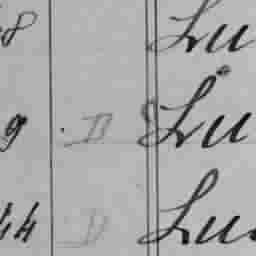 8 Lu
9 II Lu
44 II Lu